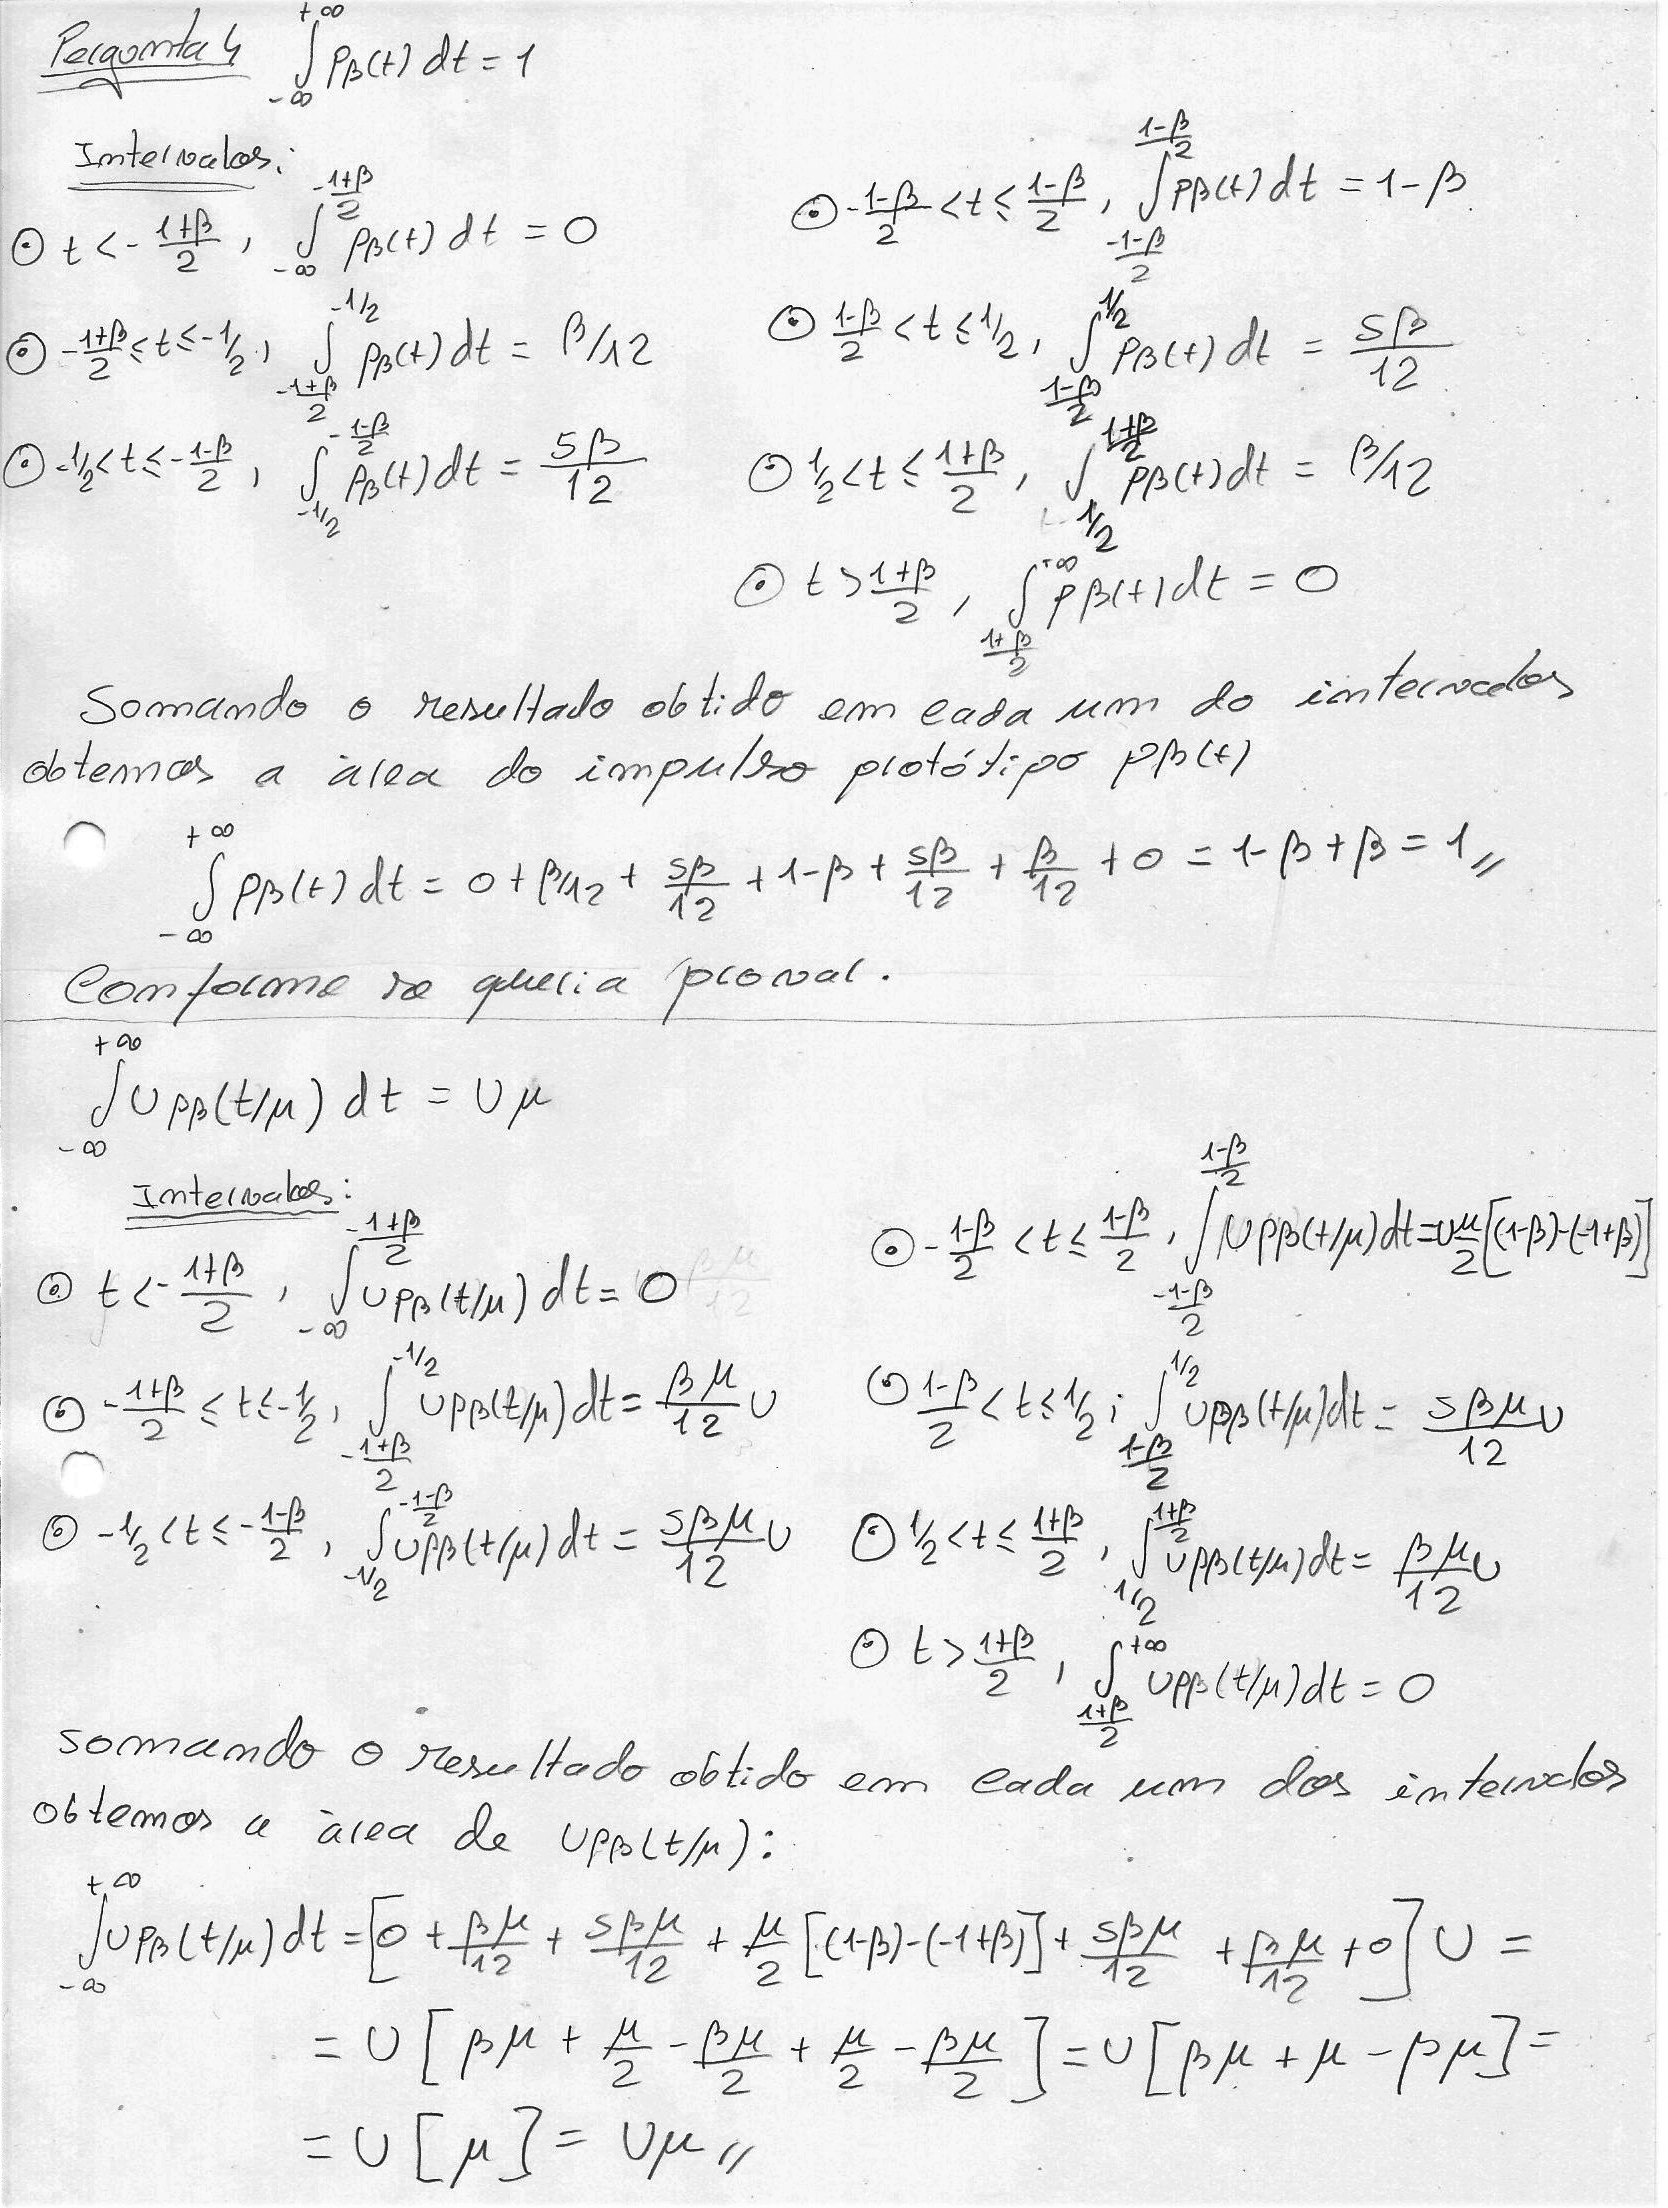 Pergunta 4 ∫_{-∞}^{+∞} pβ(t) dt = 1
Intervalos:
⊙ t < -(1+β)/2 , ∫_{-∞}^{-(1+β)/2} pβ(t) dt = 0
⊙ -(1+β)/2 ≤ t ≤ -1/2 , ∫_{-(1+β)/2}^{-1/2} pβ(t) dt = β/12
⊙ -1/2 < t ≤ -(1-β)/2 , ∫_{-1/2}^{-(1-β)/2} pβ(t) dt = 5β/12
⊙ -(1-β)/2 < t ≤ (1-β)/2 , ∫_{-(1-β)/2}^{(1-β)/2} pβ(t) dt = 1-β
⊙ (1-β)/2 < t ≤ 1/2 , ∫_{(1-β)/2}^{1/2} pβ(t) dt = 5β/12
⊙ 1/2 < t ≤ (1+β)/2 , ∫_{1/2}^{(1+β)/2} pβ(t) dt = β/12
⊙ t > (1+β)/2 , ∫_{(1+β)/2}^{+∞} pβ(t) dt = 0
Somando o resultado obtido em cada um do intervalos
obtemos a àrea do impulso protótipo pβ(t)
∫_{-∞}^{+∞} pβ(t) dt = 0 + β/12 + 5β/12 + 1-β + 5β/12 + β/12 + 0 = 1-β+β = 1 //
Conforme se queria provar.
∫_{-∞}^{+∞} U pβ(t/μ) dt = U μ
Intervalos:
⊙ t < -(1+β)/2 , ∫_{-∞}^{-(1+β)/2} U pβ(t/μ) dt = 0
⊙ -(1+β)/2 ≤ t ≤ -1/2 , ∫_{-(1+β)/2}^{-1/2} U pβ(t/μ) dt = βμ/12 U
⊙ -1/2 < t ≤ -(1-β)/2 , ∫_{-1/2}^{-(1-β)/2} U pβ(t/μ) dt = 5βμ/12 U
⊙ -(1-β)/2 < t ≤ (1-β)/2 , ∫_{-(1-β)/2}^{(1-β)/2} U pβ(t/μ) dt = U μ/2 [(1-β)-(-1+β)]
⊙ (1-β)/2 < t ≤ 1/2 ; ∫_{(1-β)/2}^{1/2} U pβ(t/μ) dt = 5βμ/12 U
⊙ 1/2 < t ≤ (1+β)/2 , ∫_{1/2}^{(1+β)/2} U pβ(t/μ) dt = βμ/12 U
⊙ t > (1+β)/2 , ∫_{(1+β)/2}^{+∞} U pβ(t/μ) dt = 0
somando o resultado obtido em cada um dos intervalos
obtemos a àrea de U pβ(t/μ):
∫_{-∞}^{+∞} U pβ(t/μ) dt = [0 + βμ/12 + 5βμ/12 + μ/2 [(1-β)-(-1+β)] + 5βμ/12 + βμ/12 + 0] U =
= U [βμ + μ/2 - βμ/2 + μ/2 - βμ/2] = U [βμ + μ - βμ] =
= U [μ] = Uμ //